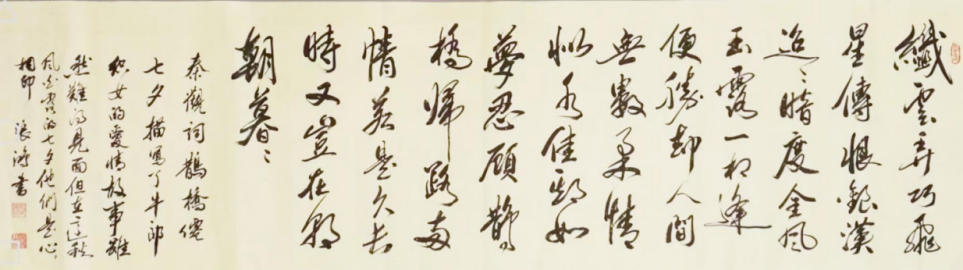 纖雲弄巧飛
星傳恨銀漢
迢〻暗度金風
玉露一相逢
便勝却人間
無數柔情
似水佳期如
夢忍顧鵲
橋歸路兩
情若是久長
時又豈在朝
朝暮〻
秦觀詞鵲橋僊
七夕描寫了牛郎
織女的愛情故事雖
然難得見面但在這秋
風白露的七夕他們是心
相印
書